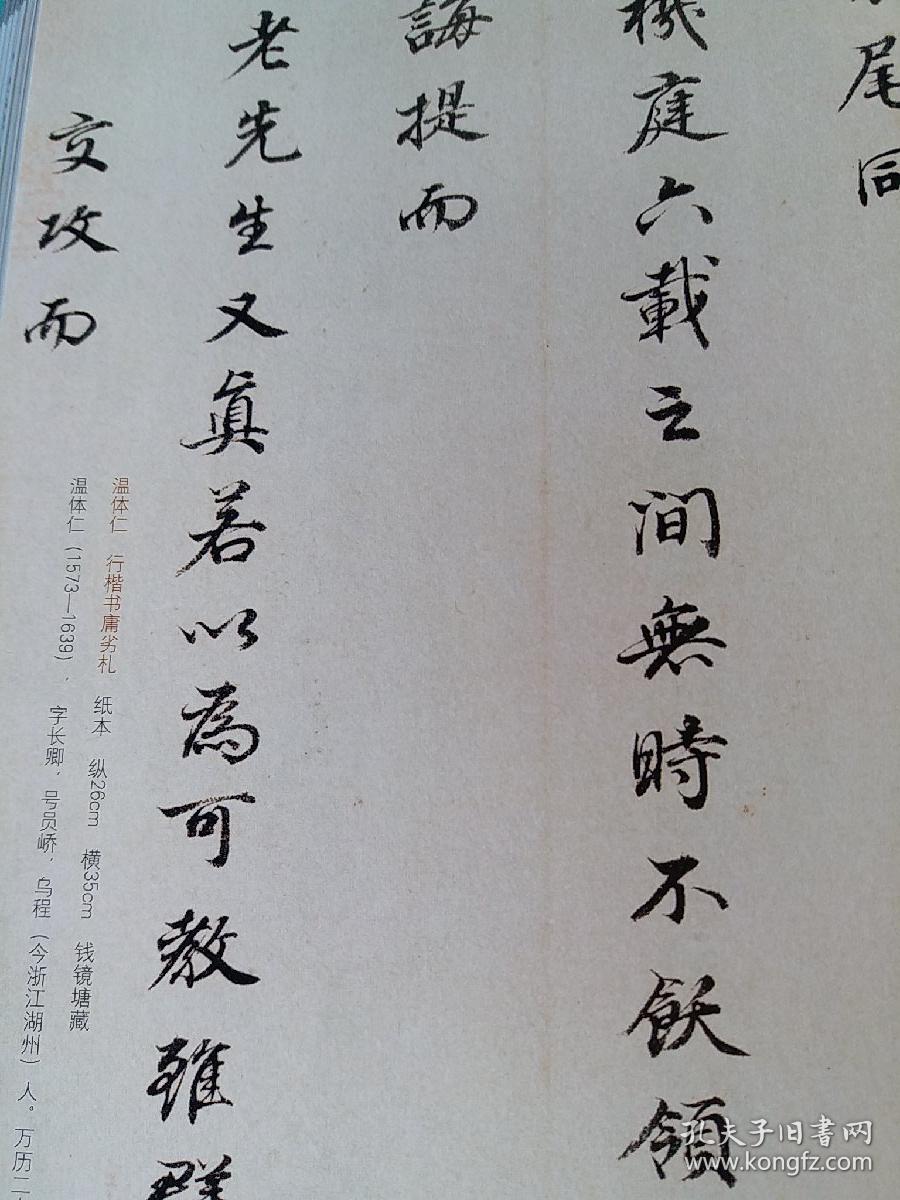 尾同
機庭六載之间無時不飫領
誨提而
老先生又真若以為可教雖群
交攻而
温体仁 行楷书庸劣札 纸本 纵26cm 横35cm 钱镜塘藏
温体仁(1573—1639)，字长卿，号员峤，乌程(今浙江湖州)人。万历二
孔夫子旧书网
www.kongfz.com